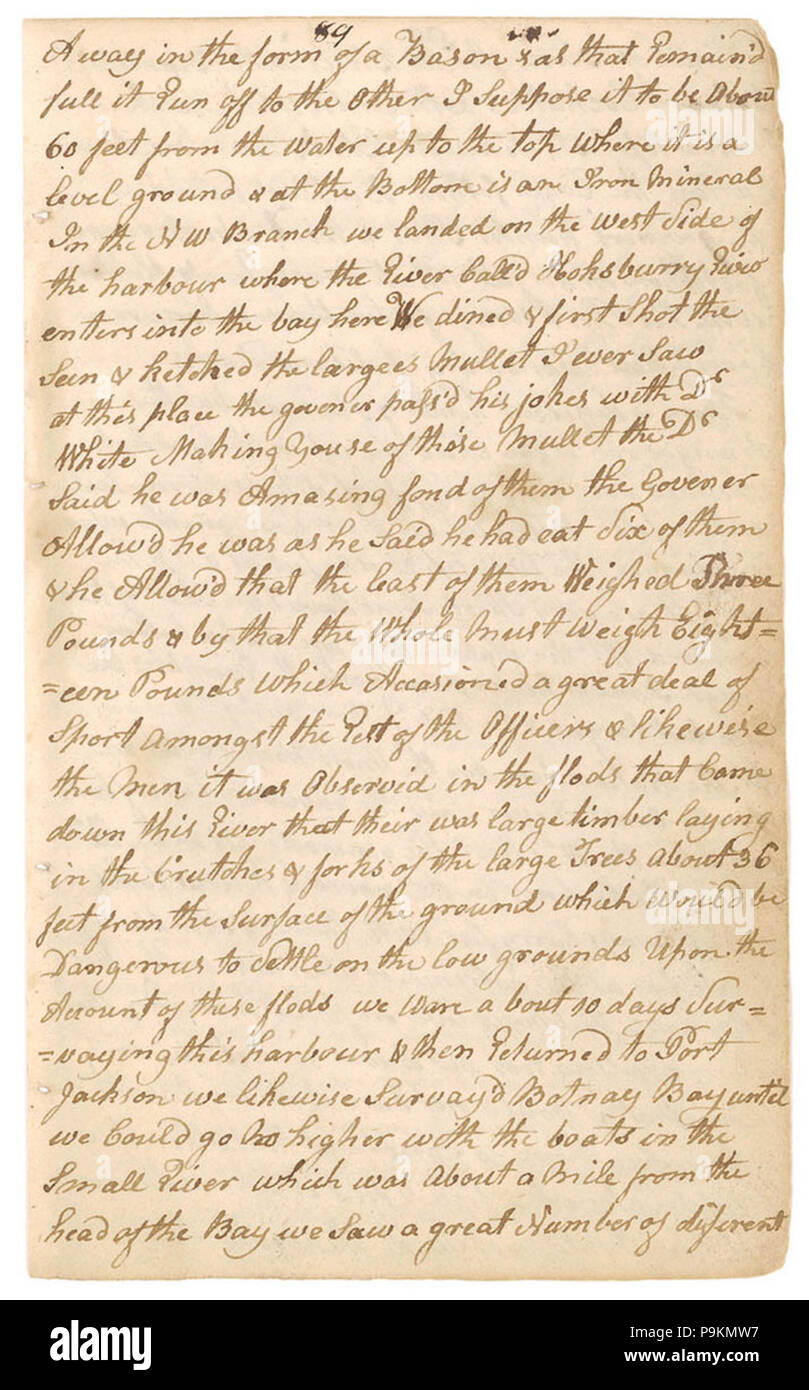 89
Away in the form of a Bason & as that Remain'd
full it Run off to the Other I Suppose it to be About
60 feet from the water up to the top where it is a
level ground & at the Bottom is an Iron Mineral
In the N W Branch we landed on the west Side of
the harbour where the River Calld Hoksburry River
enters into the bay here We dined & first Shot the
Seen & ketched the largees Mullet I ever Saw
at this place the govener pass'd his jokes with Dr
White Making youse of those Mullet the Dr
Said he was Amasing fond of them the Govener
Allow'd he was as he Said he had eat Six of them
& he Allow'd that the least of them Weighed Three
Pounds & by that the Whole Must weigh Eight=
=een Pounds which Accasioned a great deal of
Sport Amongst the Rest of the Officers & likewise
the Men it was Observid in the flods that Came
down this River that their was large timber laying
in the Crutches & forks of the large Trees About 36
feet from the Surface of the ground which Would be
Dangerous to Settle on the low grounds Upon the
Account of these flods we Ware a bout 10 days Sur=
=vaying this harbour & then Returned to Port
Jackson we likewise Survay'd Botnay Bay until
we Could go No higher with the boats in the
Small River which was About a Mile from the
head of the Bay we Saw a great Number of diferent
alamy
alamy
alamy
alamy
alamy
alamy
Image ID: P9KMW7
www.alamy.com